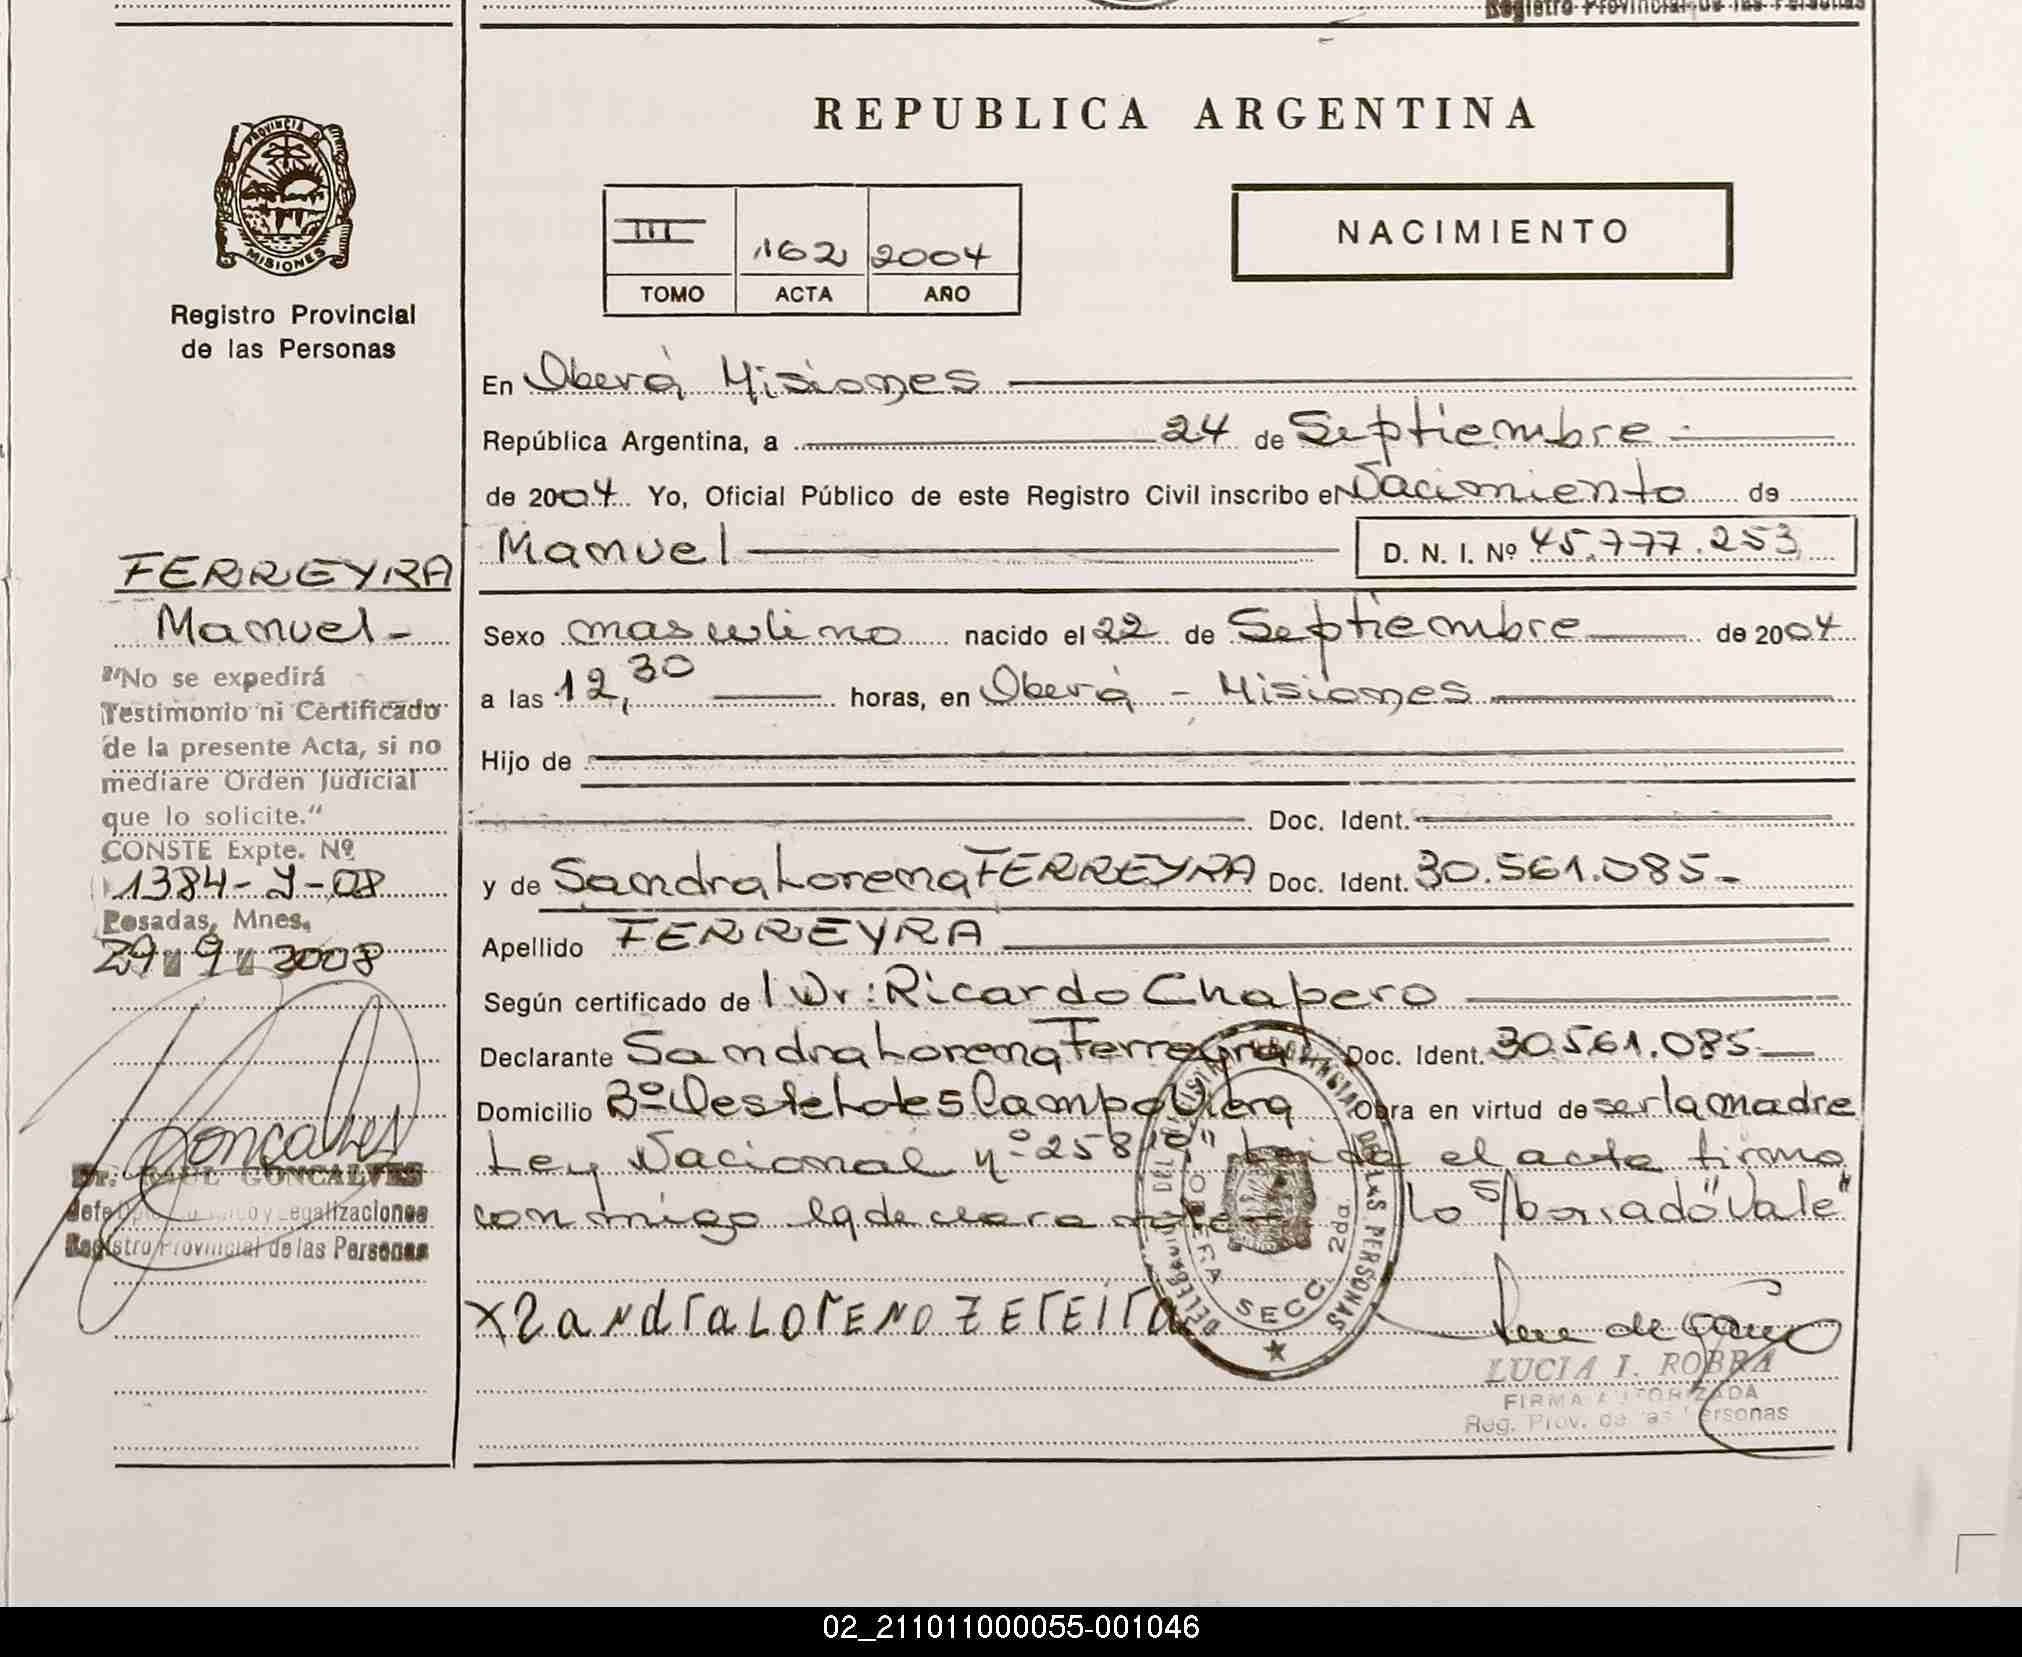 Registro Provincial de las Personas
PROVINCIA D
MISIONES
Registro Provincial
de las Personas
REPUBLICA ARGENTINA
III 162 2004
TOMO ACTA AÑO
NACIMIENTO
En Oberá Misiones
República Argentina, a 24 de Septiembre
de 2004 Yo, Oficial Público de este Registro Civil inscribo el Nacimiento de
Manuel D. N. I. Nº 45.777.253
Sexo masculino nacido el 22 de Septiembre de 2004
a las 12,30 horas, en Oberá - Misiones
Hijo de
Doc. Ident.
y de Sandra Lorena FERREYRA Doc. Ident. 30.561.085-
Apellido FERREYRA
Según certificado de l Dr: Ricardo Chapero
Declarante Sandra Lorena Ferreyra Doc. Ident. 30.561.085
Domicilio Bº Oeste Lotes Campo Viera Obra en virtud de ser la madre
Ley Nacional nº 25819" Leida el acta firma
conmigo la declarante lo s/borrado "Vale"
x SandraLoreno ZEreira
LUCIA I. ROBRA
FIRMA AUTORIZADA
Reg. Prov. de las Personas
DELEGACION DEL REGISTRO PROVINCIAL DE LAS PERSONAS
OBERA SECC. 2da.
FERREYRA
Manuel-
"No se expedirá
Testimonio ni Certificado
de la presente Acta, si no
mediare Orden Judicial
que lo solicite."
CONSTE Expte. Nº
1384-J-08
Posadas, Mnes.
29 9 2008
Goncalves
Dr. RAUL GONCALVES
Jefe Dpto. y Legalizaciones
Registro Provincial de las Personas
02_211011000055-001046